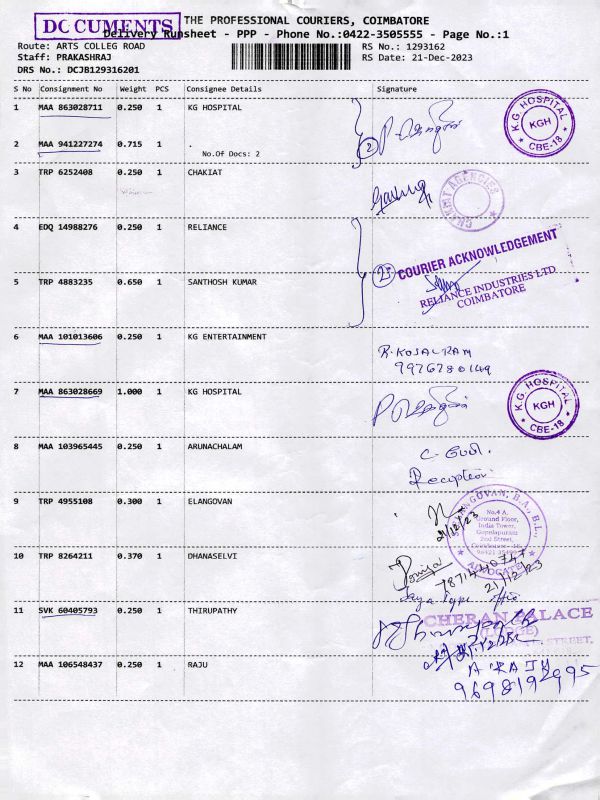 DOCUMENTS
THE PROFESSIONAL COURIERS, COIMBATORE
Delivery Runsheet - PPP - Phone No.:0422-3505555 - Page No.:1
Route: ARTS COLLEG ROAD
RS No.: 1293162
Staff: PRAKASHRAJ
RS Date: 21-Dec-2023
DRS No.: DCJB129316201
S No Consignment No Weight PCS Consignee Details Signature
1 MAA 863028711 0.250 1 KG HOSPITAL
K.G. HOSPITAL
KGH
CBE-18
2 MAA 941227274 0.715 1 .
No.Of Docs: 2
2
3 TRP 6252408 0.250 1 CHAKIAT
CHAKIAT AGENCIES
4 EDQ 14988276 0.250 1 RELIANCE
2 COURIER ACKNOWLEDGEMENT
RELIANCE INDUSTRIES LTD
COIMBATORE
5 TRP 4883235 0.650 1 SANTHOSH KUMAR
6 MAA 101013606 0.250 1 KG ENTERTAINMENT
R. KOSALRAM
9976780149
7 MAA 863028669 1.000 1 KG HOSPITAL
K.G. HOSPITAL
KGH
CBE-18
8 MAA 103965445 0.250 1 ARUNACHALAM
Reception
9 TRP 4955108 0.300 1 ELANGOVAN
21/12/23
ELANGOVAN, B.A., B.L.,
No.4 A,
Ground Floor,
India Tower,
Gopalapuram
2nd Street,
ADVOCATE
10 TRP 8264211 0.370 1 DHANASELVI
7871440747
21/12/23
11 SVK 60405793 0.250 1 THIRUPATHY
CHERAN PALACE
STREET,
12 MAA 106548437 0.250 1 RAJU
A RAJU